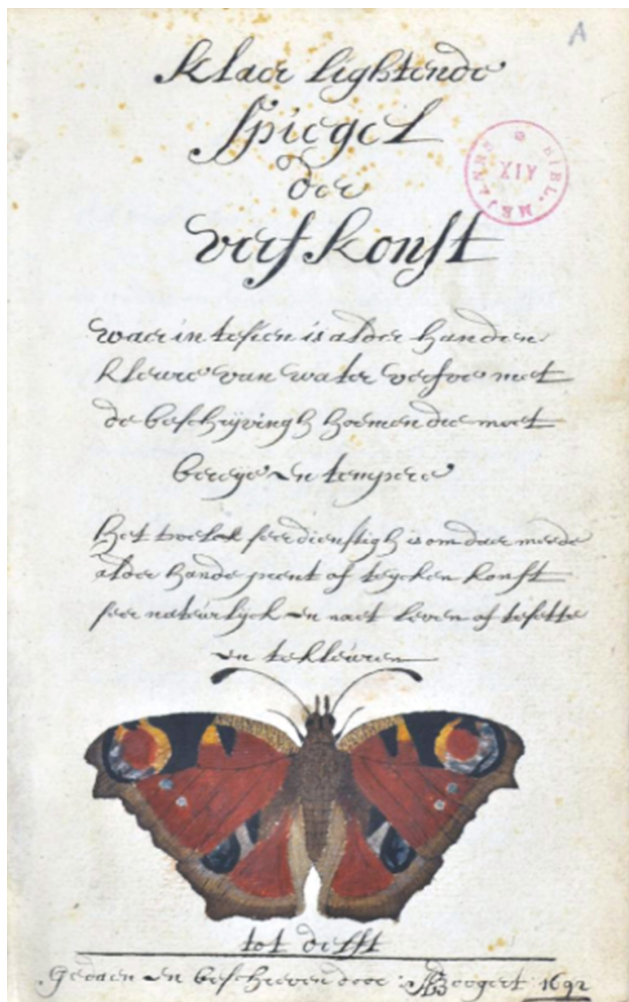 A
klaer lightende
Spiegel
der
verfkonst
BIBL. MEJANES
XIX
waer in te sien is alder handen
kleure van water verfve met
de beschrijvingh hoe men die moet
bereije en tempere
Het welck seer dienstigh is om daer meede
alder hande prent of teycken konst
seer natuerlyck en naet leven af te sette
en te kleuren
tot delft
Gedaen en beschreven door : A Boogert : 1692